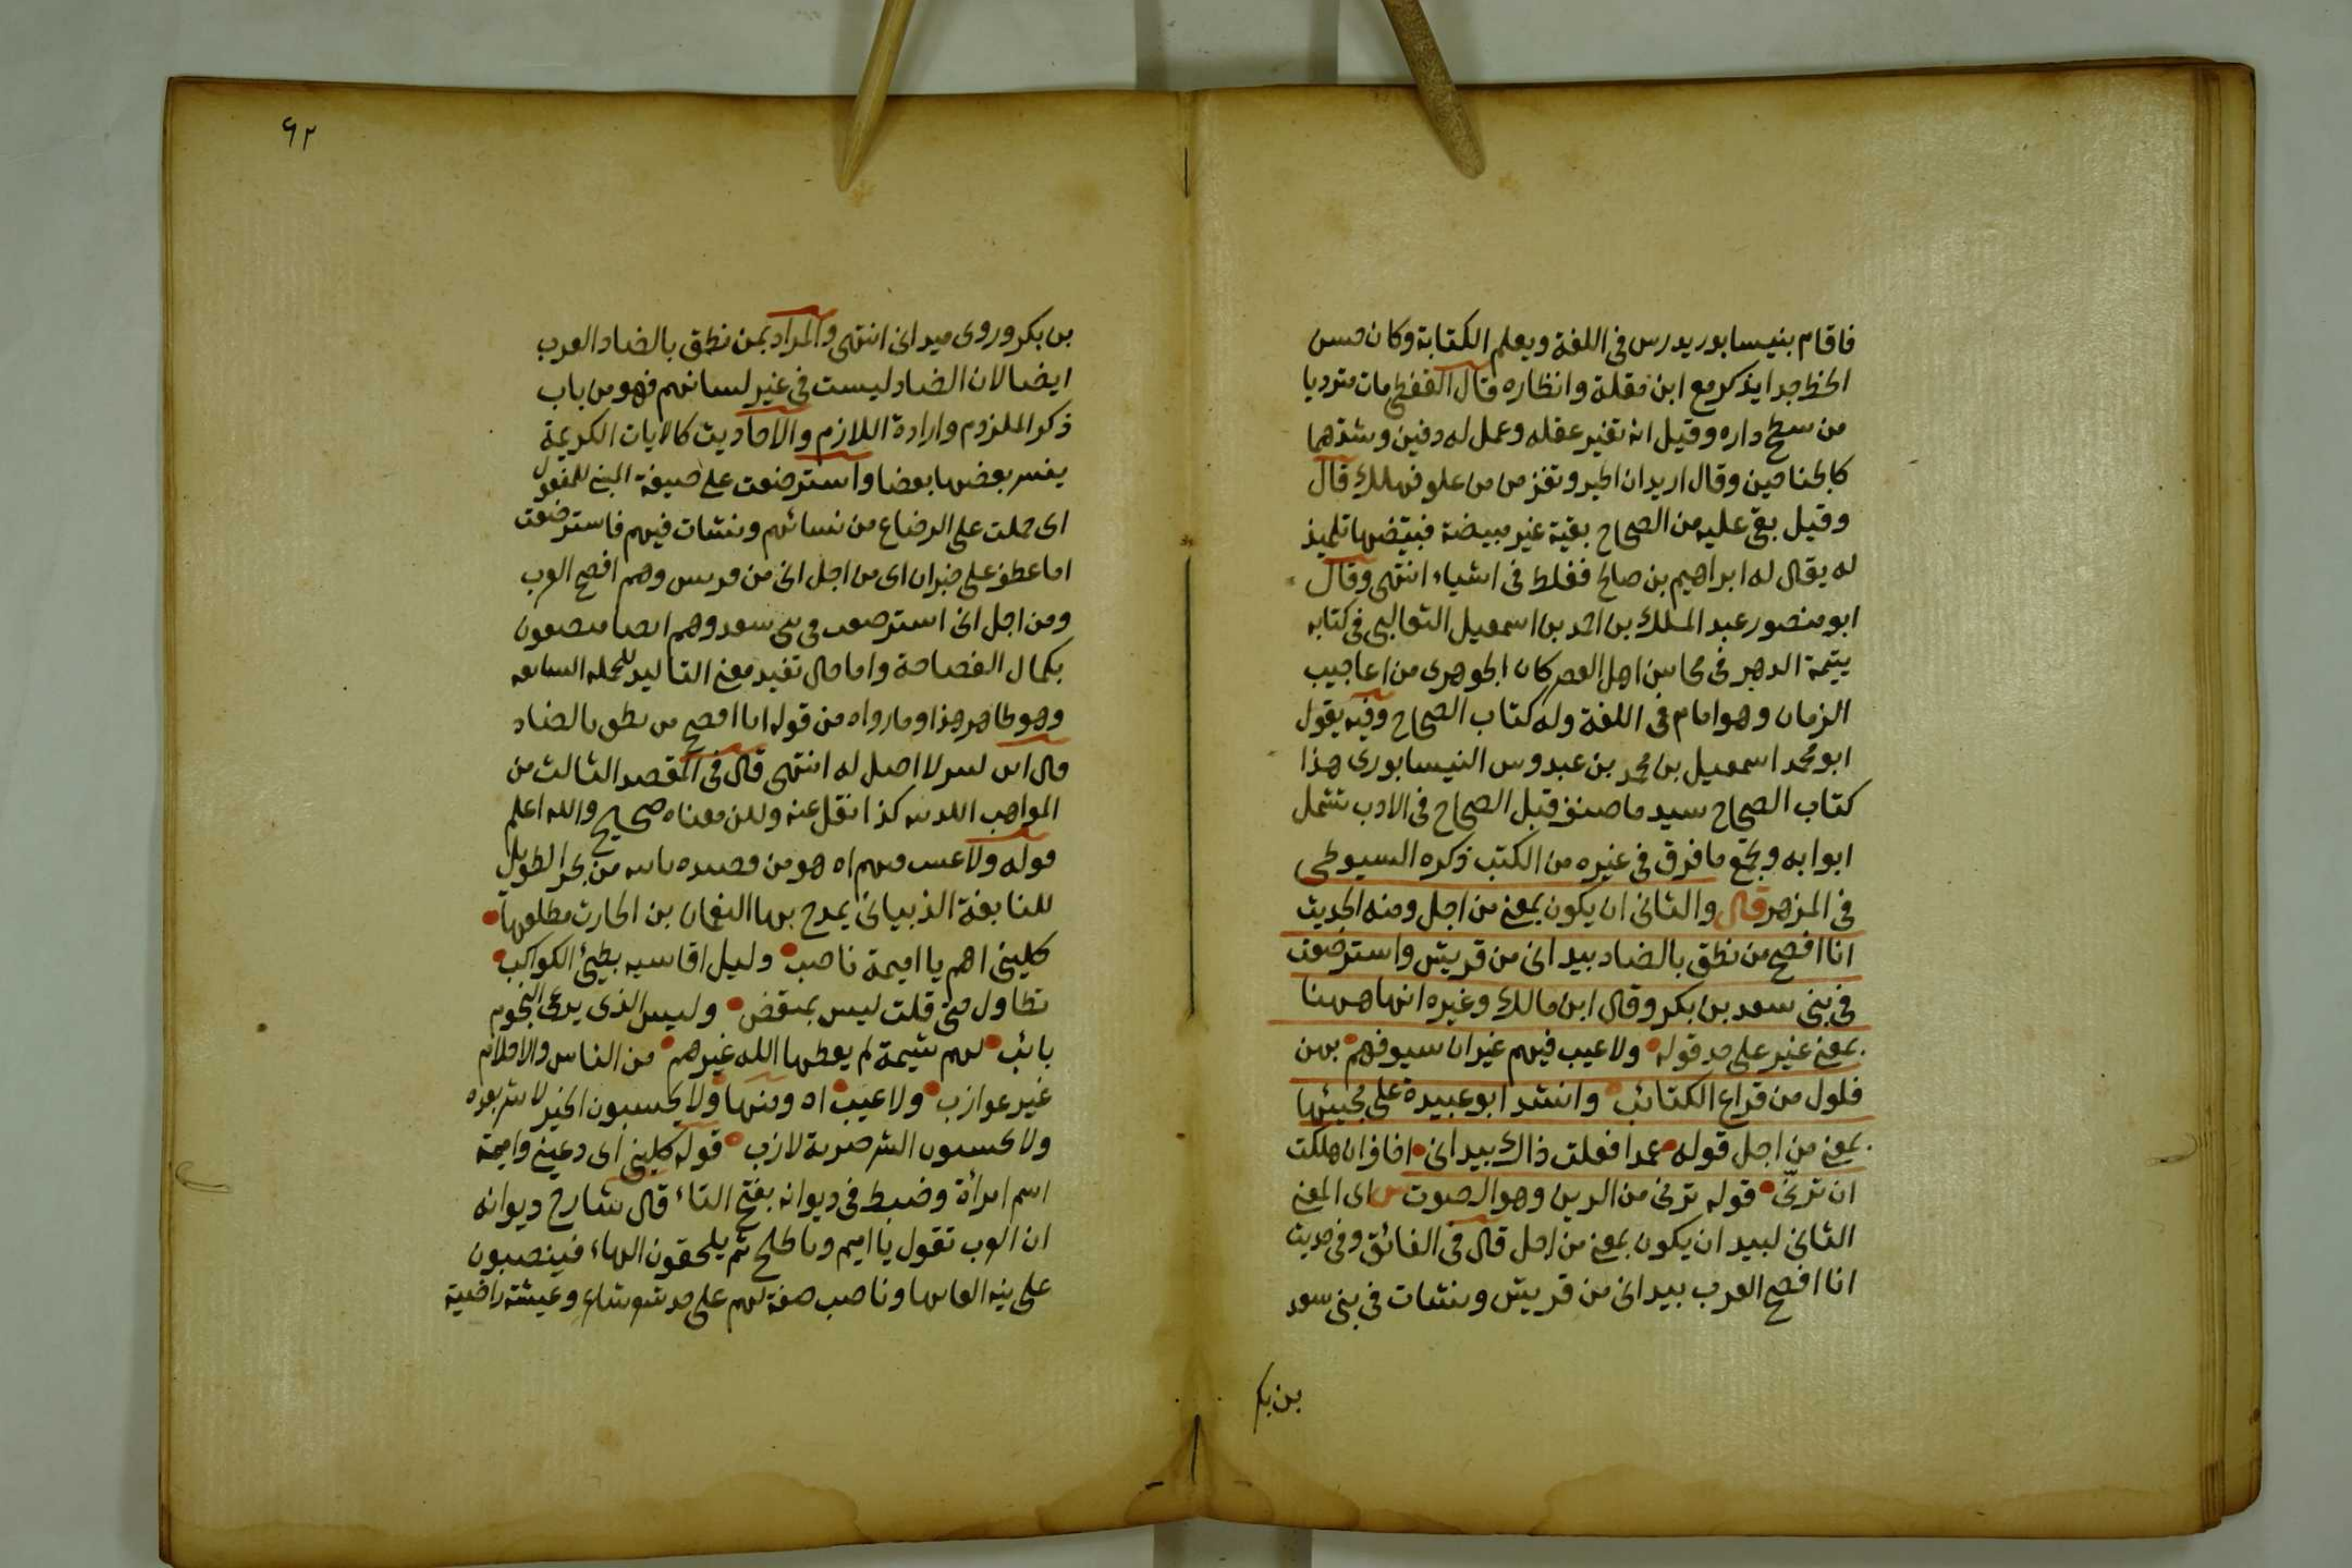 فاقام بنيسابور يدرس في اللغة ويعلم الكتابة وكان حسن
الخط جدا يذكر مع ابن مقلة وانظاره قال القفطي مات مترديا
من سطح داره وقيل انه تغير عقله وعمل له دفين وشدهما
كالجناحين وقال اريد ان اطير وقفز من علو فهلك قال
وقيل بقي عليه من الصحاح بقية غير مبيضة فبيضها تلميذ
له يقال له ابراهيم بن صالح فغلط في اشياء انتهى وقال
ابو منصور عبد الملك بن احمد بن اسمعيل الثعالبي في كتابه
يتيمة الدهر في محاسن اهل العصر كان الجوهرى من اعاجيب
الزمان وهو امام في اللغة وله كتاب الصحاح وفيه يقول
ابو محمد اسمعيل بن محمد بن عبدوس النيسابورى هذا
كتاب الصحاح سيد ما صنف قبل الصحاح في الادب تشمل
ابوابه وبجمع ما فرق في غيره من الكتب ذكره السيوطي
في المزهر قال والثاني ان يكون بمعنى من اجل ومنه الحديث
انا افصح من نطق بالضاد بيد انى من قريش واسترضعت
في بنى سعد بن بكر وقال ابن مالك وغيره انها ههنا
بمعنى غير على حد قوله ولا عيب فيهم غير ان سيوفهم بهن
فلول من قراع الكتائب وانشد ابو عبيدة على مجيئها
بمعنى من اجل قوله عمدا فعلت ذاك بيد انى اخاف ان هلكت
ان ترنى قوله ترنى من الرنين وهو الصوت اى المعنى
الثاني لبيد ان يكون بمعنى من اجل قال في الفائق وفي حديث
انا افصح العرب بيد انى من قريش ونشات في بنى سعد
بن بكر
٩٢
بن بكر وروى ميد انى انتهى والمراد بمن نطق بالضاد العرب
ايضا لان الضاد ليست في غير لسانهم فهو من باب
ذكر الملزوم وارادة اللازم والاحاديث كالايات الكريمة
يفسر بعضها بعضا واسترضعت على صيغة المبنى للمفعول
اى حملت على الرضاع من نسائهم ونشات فيهم فاسترضعت
اما عطف على خبر ان اى من اجل انى من قريش وهم افصح العرب
ومن اجل انى استرضعت في بنى سعد وهم ايضا متصفون
بكمال الفصاحة واما حال تفيد معنى التاكيد للجملة السابقة
وهو ظاهر هذا وما رواه من قوله انا افصح من نطق بالضاد
قال ابن كثير لا اصل له انتهى قال في المقصد الثالث من
المواهب اللدنية كذا نقل عنه ولكن معناه صحيح والله اعلم
قوله ولا عيب فيهم اه هو من قصيدة بائية من بحر الطويل
للنابغة الذبيانى يمدح بها النعمان بن الحارث مطلعها
كلينى لهم يا اميمة ناصب وليل اقاسيه بطئ الكواكب
تطاول حتى قلت ليس بمنقض وليس الذى يرعى النجوم
بائب لهم شيمة لم يعطها الله غيرهم من الناس والاحلام
غير عوازب ولا عيب اه ومنها ولا يحسبون الخير لا شر بعده
ولا يحسبون الشر ضربة لازب قوله كلينى اى دعينى واميمة
اسم امرأة وضبط في ديوانه بفتح التاء قال شارح ديوانه
ان العرب تقول يا اميم ويا طلح ثم يلحقون الهاء فينصبون
على نية القائها وناصب صفة لهم على حد شعر شاعر وعيشة راضية